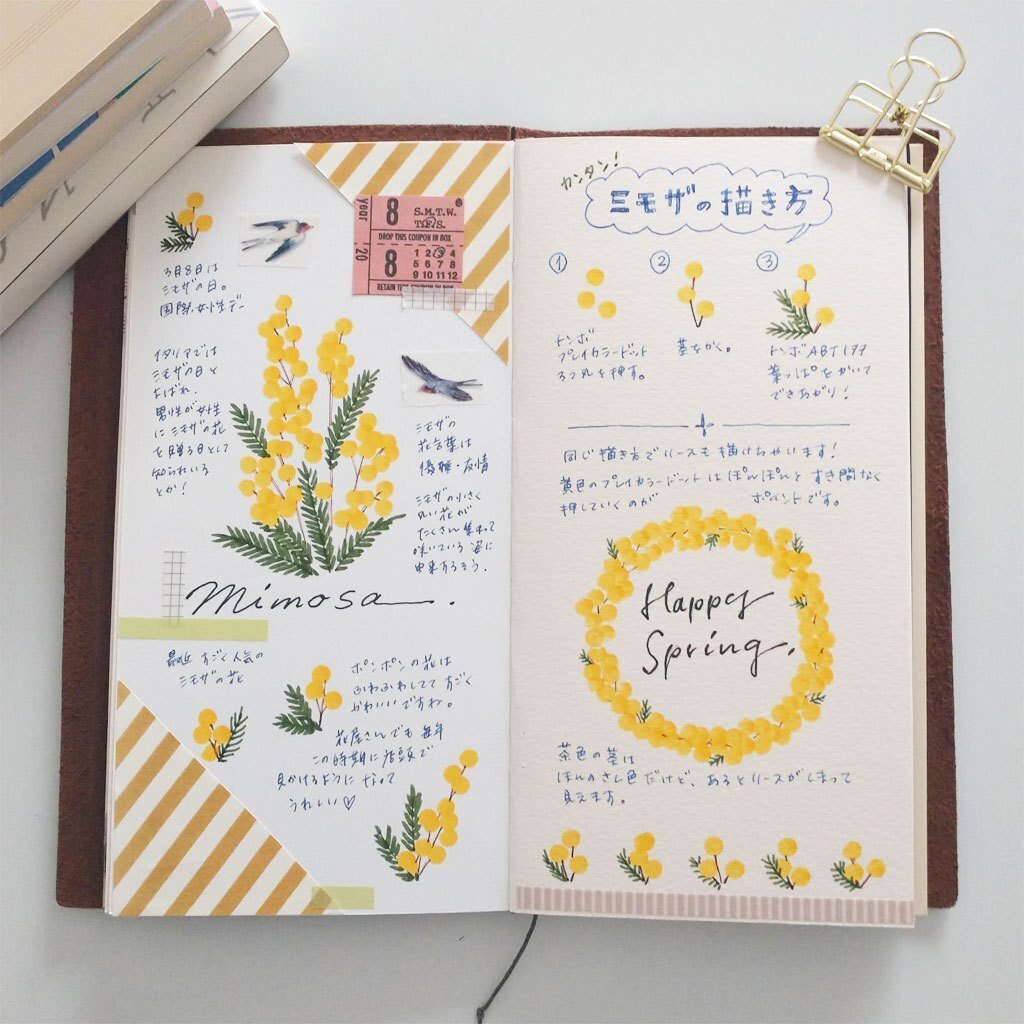 3月8日は
ミモザの日。
国際女性デー
year
'20
8
S.M.T.W.
T.F.S.
DROP THIS COUPON IN BOX
8
1 2 3 4
5 6 7 8
9 10 11 12
RETAIN THIS COUPON
イタリアでは
ミモザの日と
よばれ、
男性が女性
にミモザの花
を贈る日として
知られている
とか!
ミモザの
花言葉は
優雅・友情
ミモザの小さく
丸い花が
たくさん集まって
咲いている姿に
由来するそう。
Mimosa.
最近すごく人気の
ミモザの花
ポンポンの花は
ふわふわしててすごく
かわいいですね。
花屋さんでも毎年
この時期に店頭で
見かけるようになって
うれしい♡
カンタン!
ミモザの描き方
①
トンボ
プレイカラードット
3つ丸を押す。
②
茎をかく。
③
トンボABT177
葉っぱをかいて
できあがり!
同じ描き方でリースも描けちゃいます!
黄色のプレイカラードットはぽんぽんとすき間なく
押していくのが ポイントです。
Happy
Spring.
茶色の茎は
ほんのさし色だけど、あるとリースがしまって
見えます。